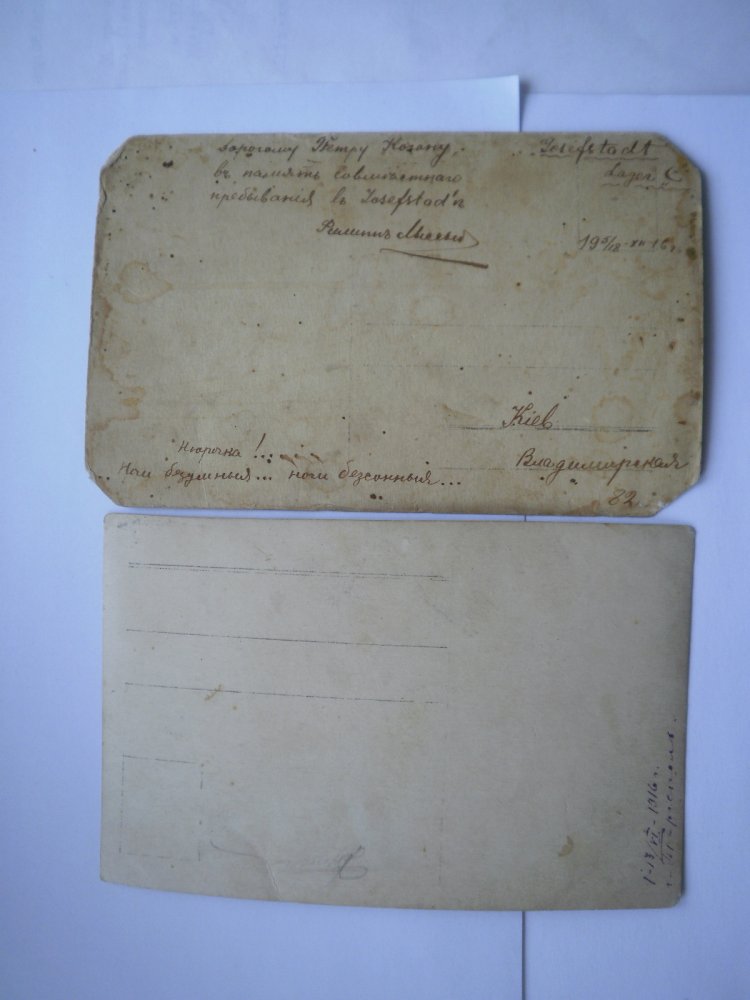 дорогому Петру Козону,
въ память совмѣстнаго
пребыванія въ Josefstad'ѣ
Филиппъ
Josefstadt
Lager C
19 5/18 XII 16 г.
Кіев
Владимирская
82
Нюрочка!...
.. Ночи безумныя... ночи безсонныя...
1916 г.